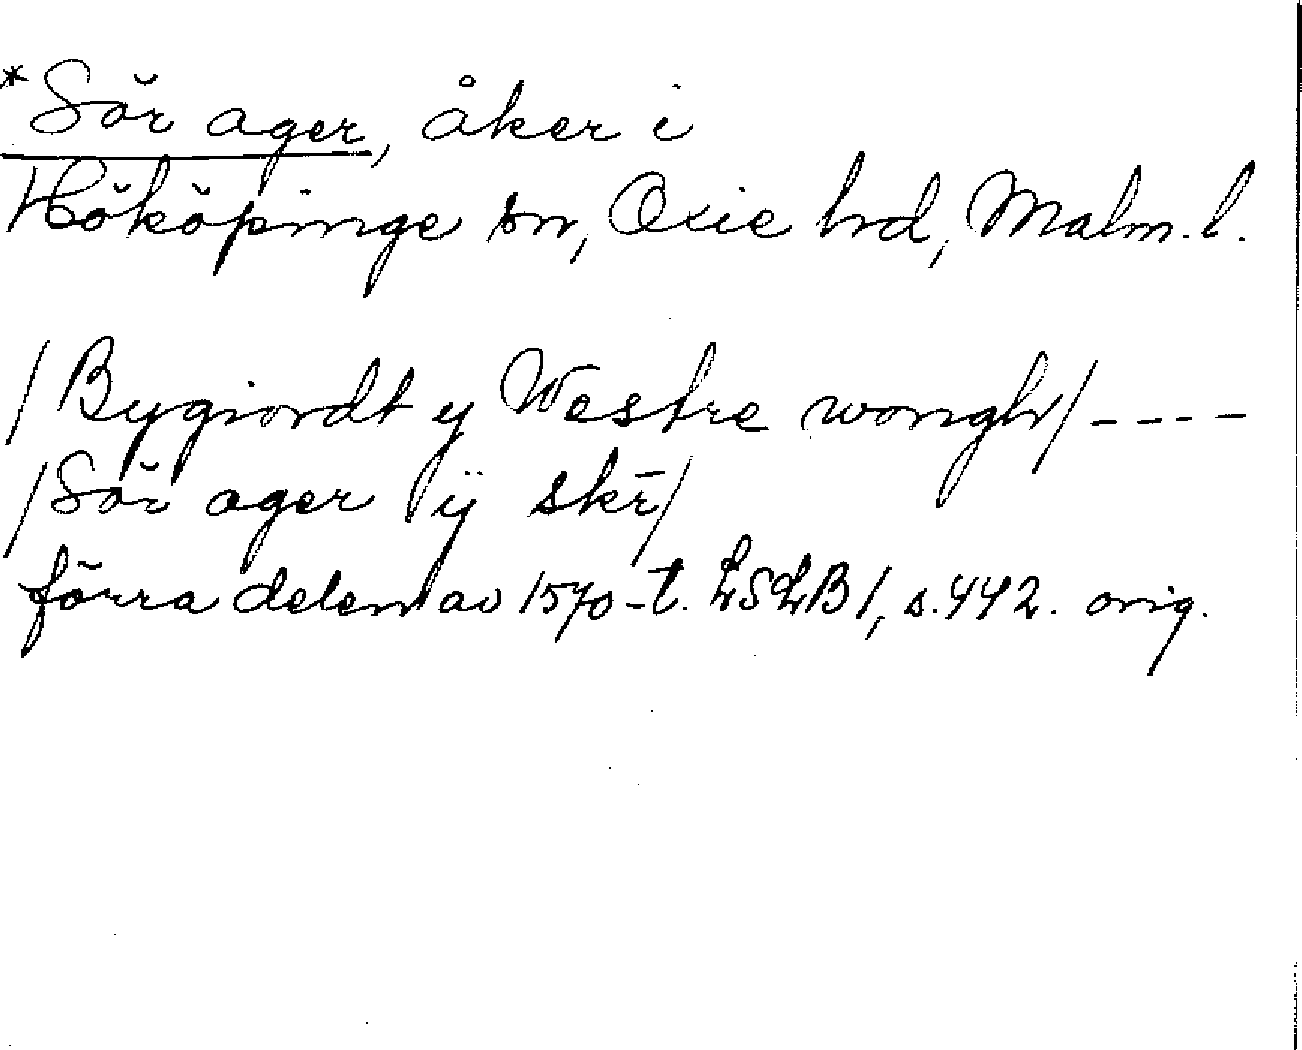 *Sör ager, åker i
Hököpinge sn, Oxie hd, Malm. l.
/Bygiordt y Westre wongh/ - - - -
/Sör ager ÿ skr̄/
förra delen av 1570-t. LSLB 1, s. 442. orig.